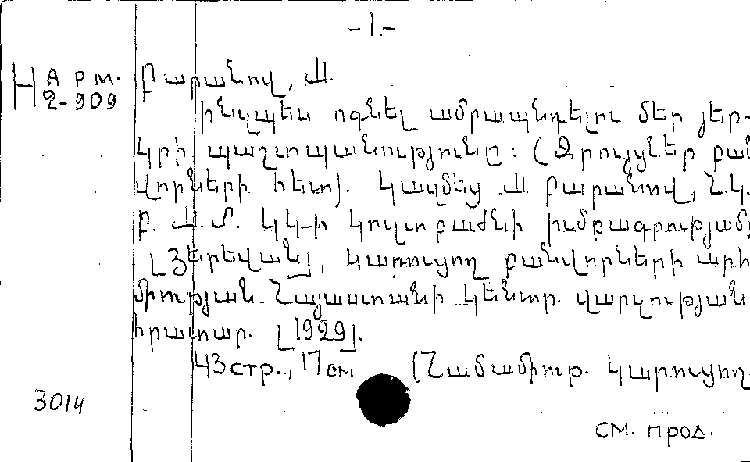 -1.-
Арм. Բարանով, Մ.
2-909 Ինչպես ոգնել ամրապնդելու մեր յեր-
կրի պաշտպանությունը: (Զրույցներ բան
վորների հետ). Կազմեց Մ. Բարանով, Ն.Կ.
կուլտբաժնի խմբագրությամբ
[Յերեվան], Կարուցող բանվորների արհ
միության Հայաստանի կենտր. վարչության
հրատար. [1929].
43 стр., 17 см (Համամիութ. Կարուցող.
3014
см. прод.